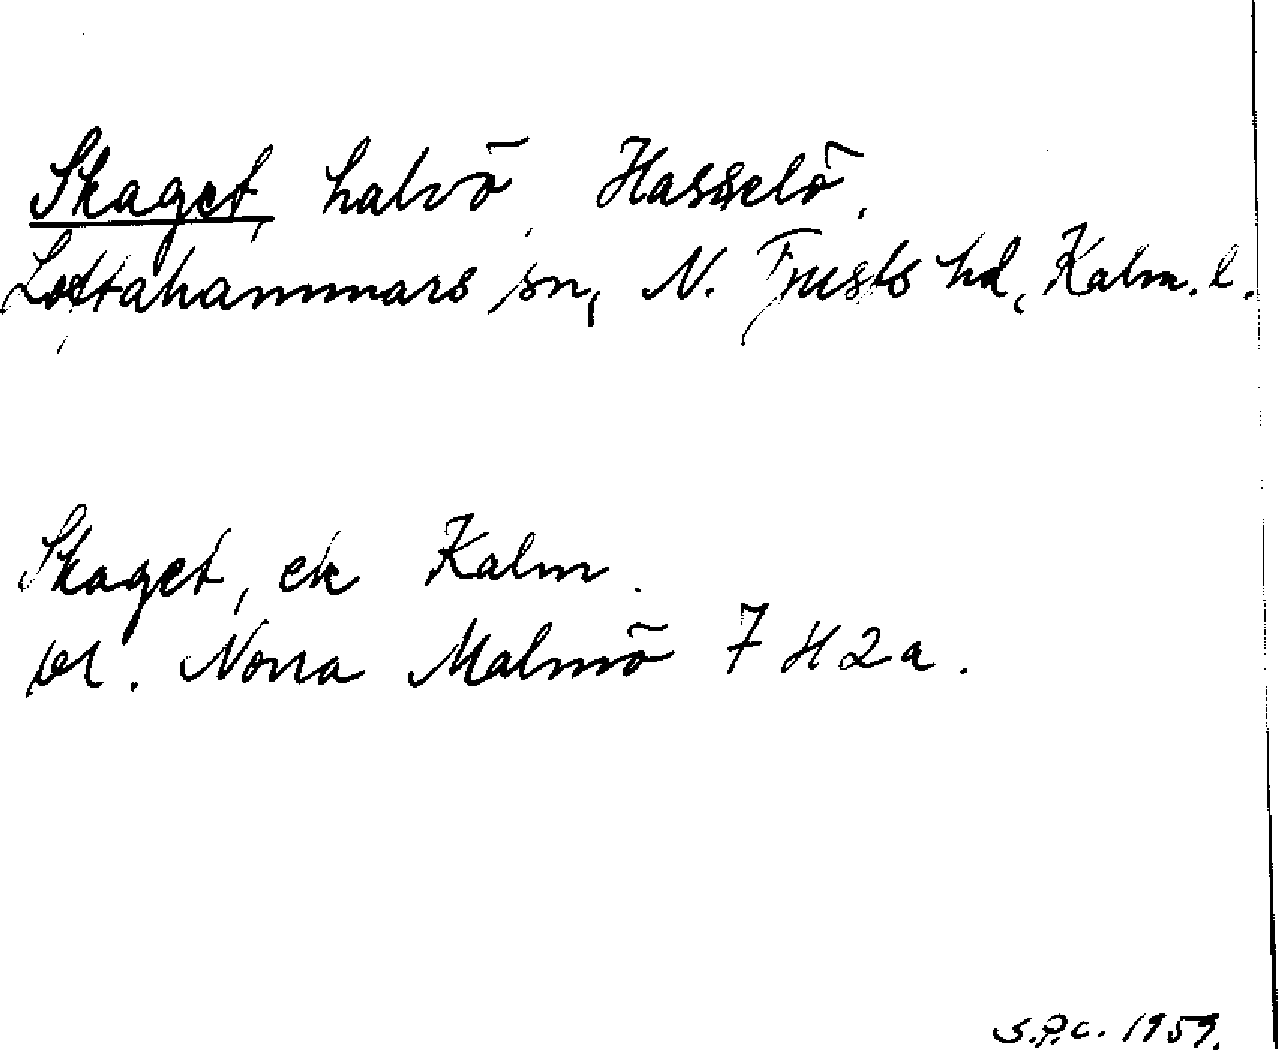 Skaget, halvö, Hasselö,
Loftahammars sn, N. Tjusts hd, Kalm. l.
Skaget, ek Kalm.
bl. Norra Malmö 7 H 2a.
S.P.C. 1959.